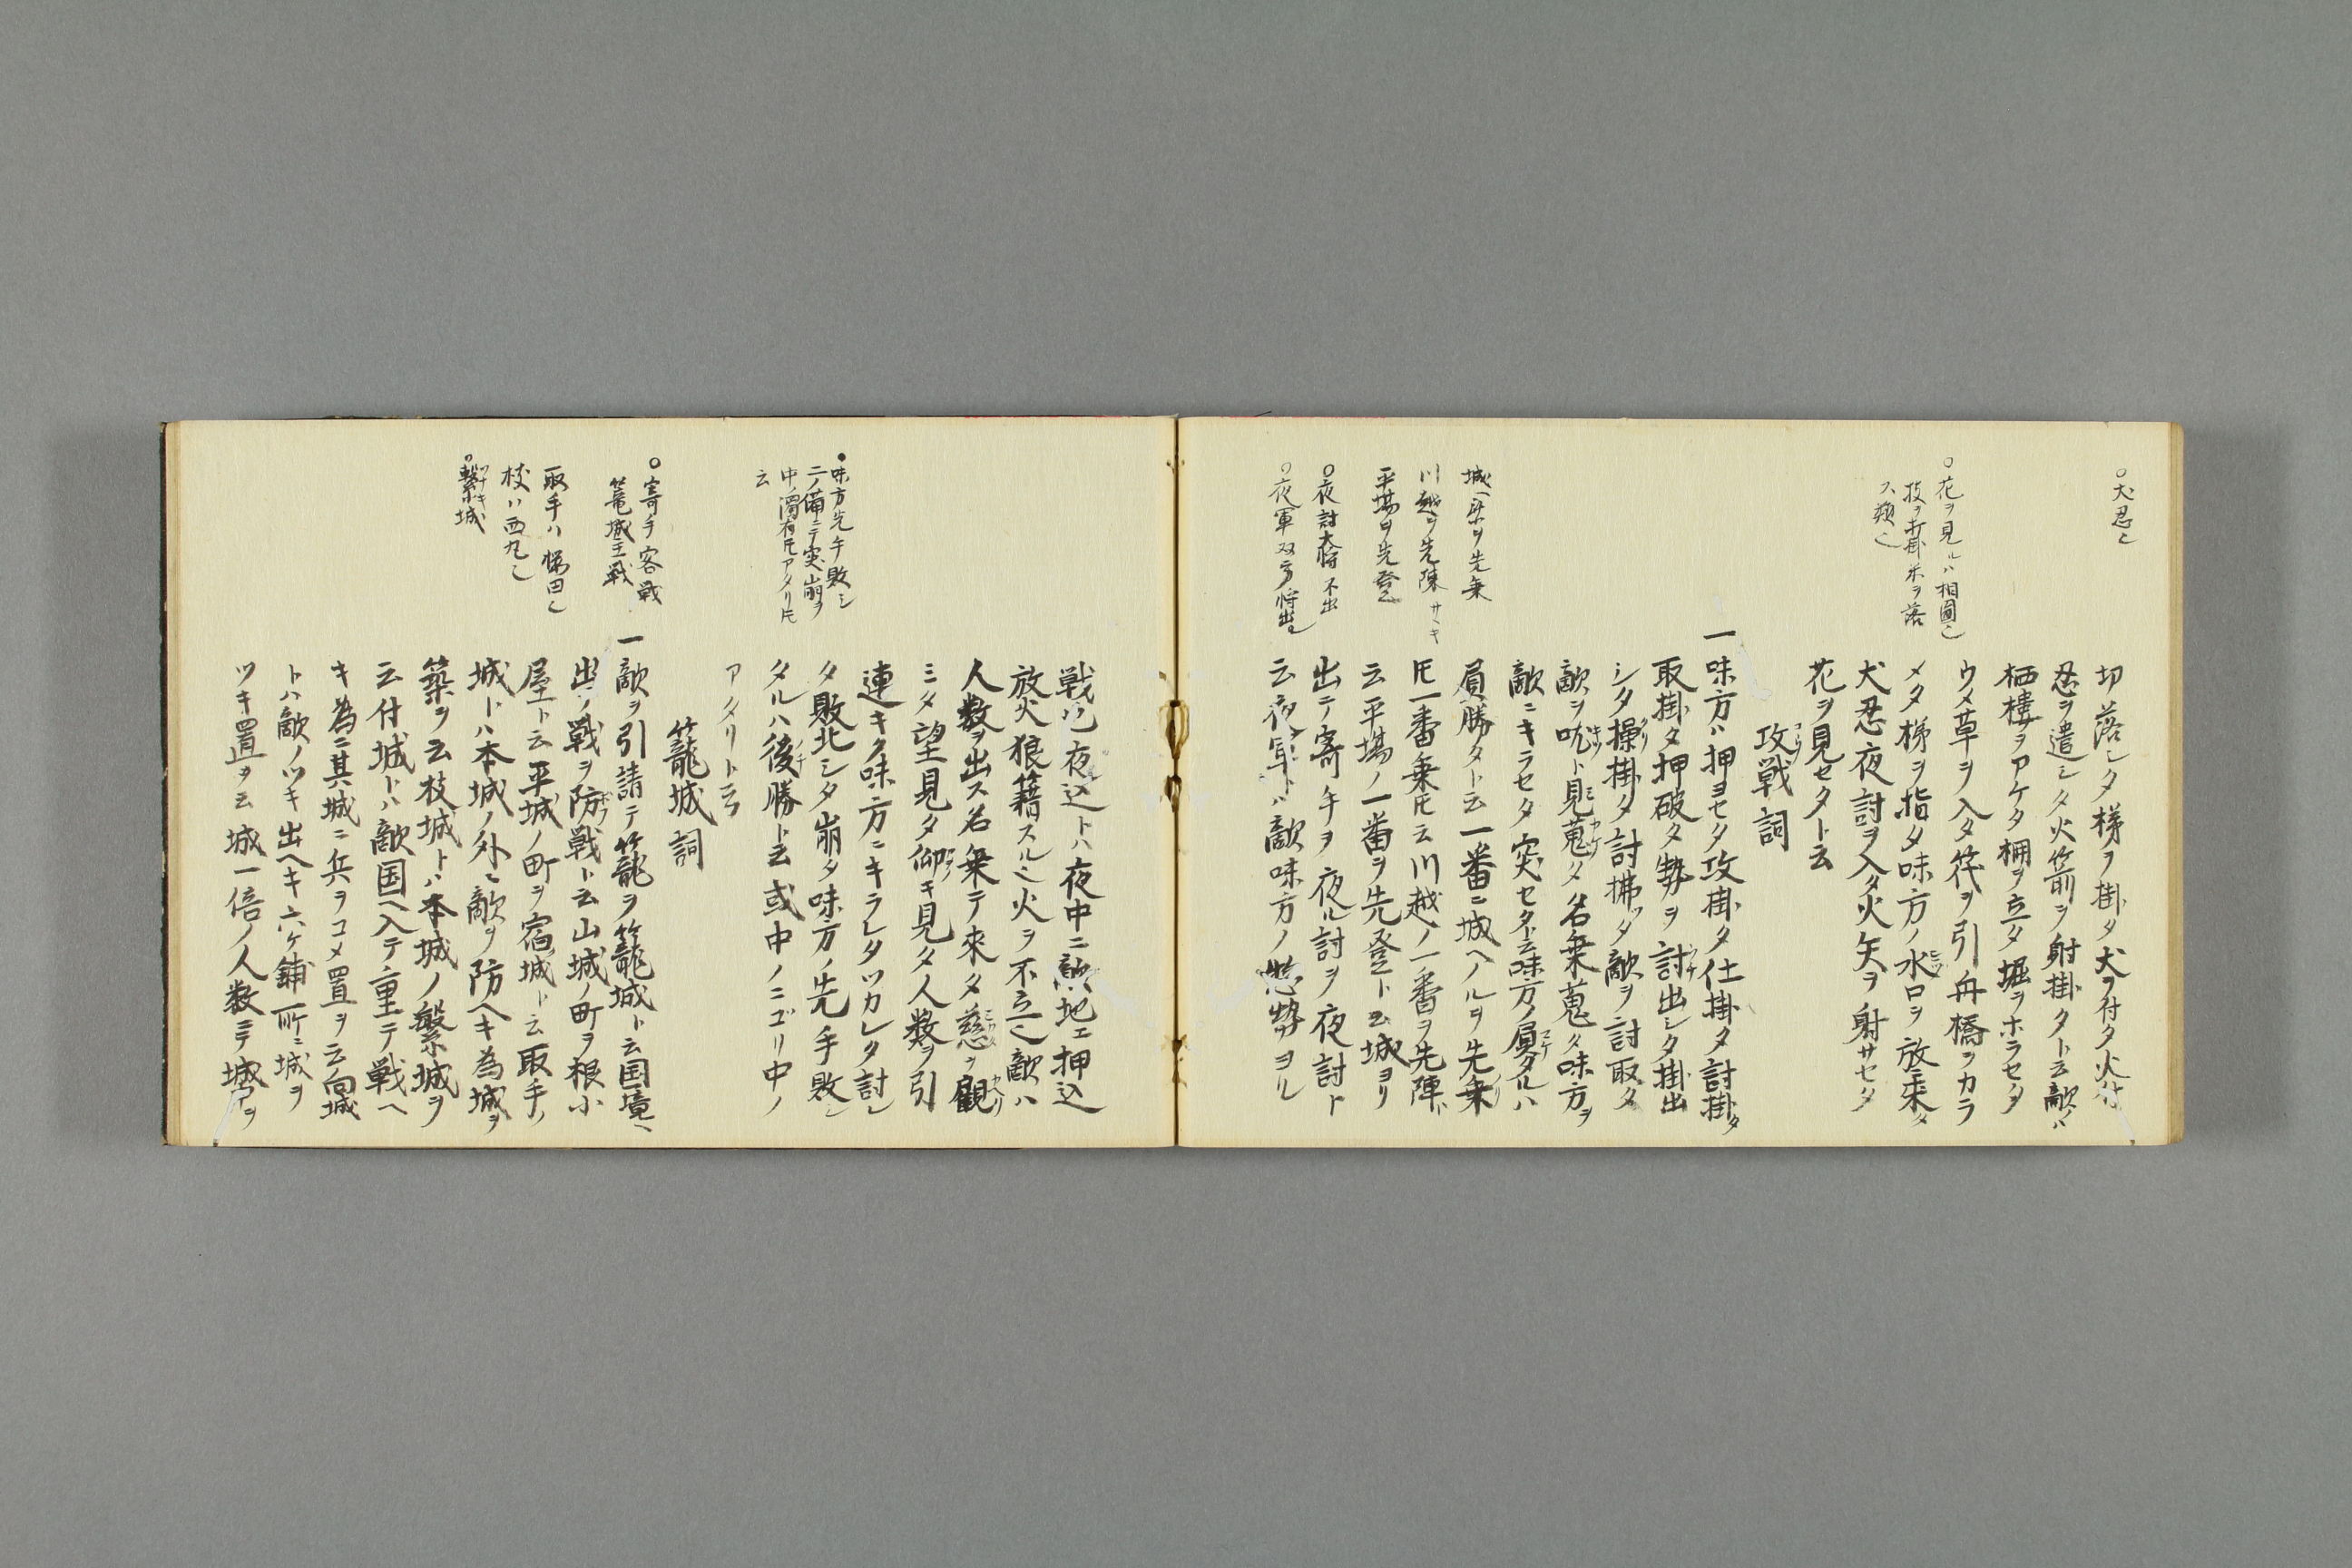 ○犬忍〻
○花ヲ見ルハ相圖〻
技ヲ打掛木ヲ落
ス類〻
切落シタ梯ヲ掛タ犬ヲ付タ火付
忍ヲ遣シタ火箭ヲ射掛タト云敵ハ
栖樓ヲアケタ柵ヲ立タ堀ヲホラセタ
ウメ草ヲ入タ筏ヲ引舟橋ヲカラ
メタ梯ヲ指タ味方ノ水口ヲ放来タ
犬忍夜討ヲ入タ火矢ヲ射サセタ
花ヲ見セタト云
攻戦詞
一味方ハ押ヨセタ攻掛タ仕掛タ討掛タ
取掛タ押破タ勢ヲ討出シタ掛出
シタ操掛タ討拂タ敵ヲ討取タ
敵ヲ吭ト見蒐タ名乗蒐タ味方ヲ
敵ニキラセタ突セタト云味方ノ負タルハ
負勝タト云一番ニ城ヘノルヲ先乗
圧一番乗圧云川越ノ一番ヲ先陣ト
云平場ノ一番ヲ先登ト云城ヨリ
出テ寄手ヲ夜ル討ヲ夜討ト
云夜軍トハ敵味方ノ惣勢ヨル
城ヘ乗ヲ先乗
川越ヲ先陳サキ
平場ヲ先登〻
○夜討大将不出
○夜軍双方将出〻
戦也夜込トハ夜中ニ敵地エ押込
放火狼籍スル〻火ヲ不立〻敵ハ
人数ヲ出ス名乗テ來タ慈ヲ観
ミタ望見タ仰キ見タ人数ヲ引
連キタ味方ニキラレタツカレタ討レ
タ敗北シタ崩タ味方ノ先手敗レ
タルハ後勝ト云或中ノニゴリ中ノ
アタリト云
●味方先手敗シ
二ノ備ニテ突崩ヲ
中ノ濁有圧アタリ圧
云
籠城詞
○寄手客戦
篭城主戦
取手ハ梯田〻
枝ハ西丸〻
○繋城
一敵ヲ引請テ籠ヲ籠城ト云国境ヘ
出ノ戦ヲ防戦ト云山城ノ町ヲ根小
屋ト云平城ノ町ヲ宿城ト云取手ノ
城トハ本城ノ外ニ敵ヲ防ヘキ為城ヲ
築ヲ云枝城トハ本城ノ繋城ヲ
云付城トハ敵国ヘ入テ重テ戦ヘ
キ為ニ其城ニ兵ヲコメ置ヲ云向城
トハ敵ノツキ出ヘキ六ケ鋪所ニ城ヲ
ツキ置ヲ云城一倍ノ人数ニテ城ヲ